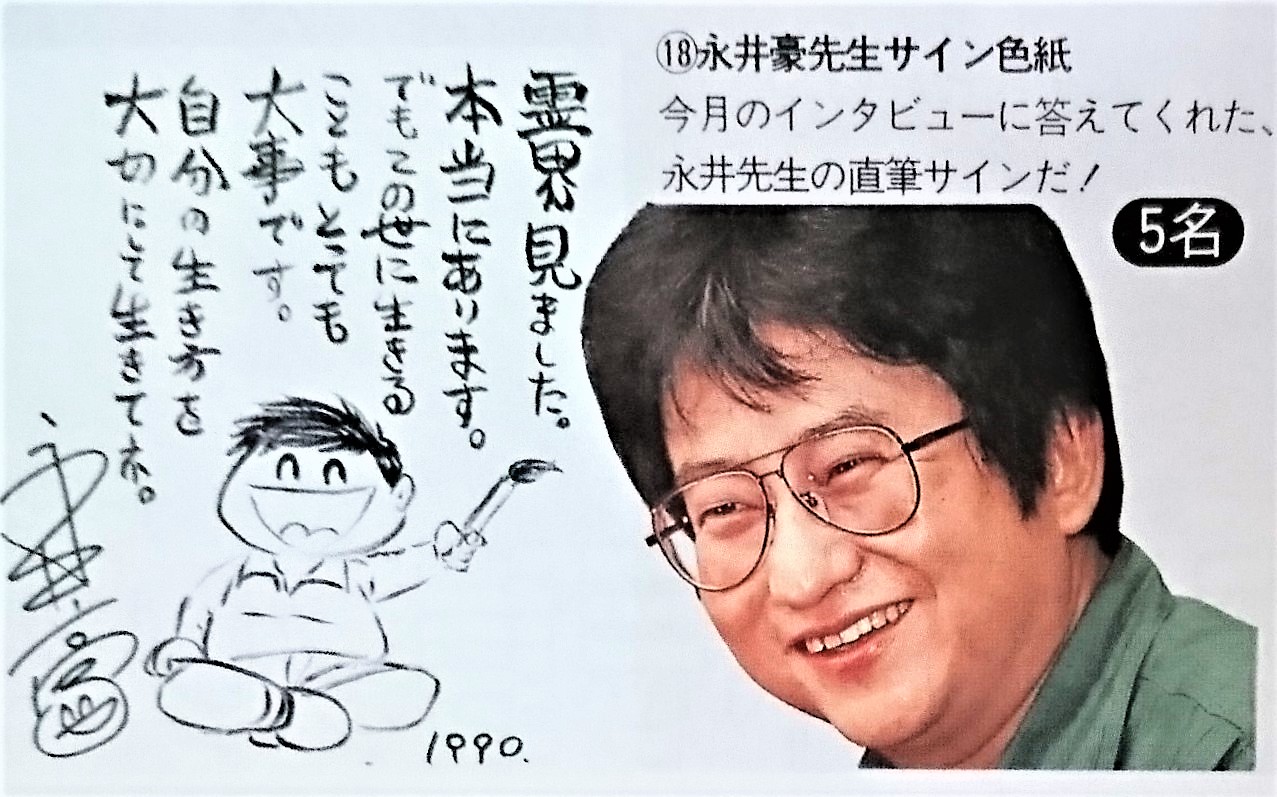 ⑱永井豪先生サイン色紙
今月のインタビューに答えてくれた、
永井先生の直筆サインだ！
5名
霊界見ました。
本当にあります。
でもこの世に生きる
こともとても
大事です。
自分の生き方を
大切にして生きてネ。
永井豪
1990.